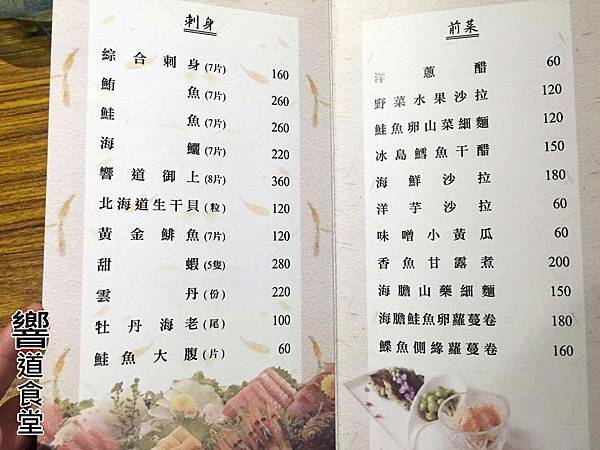 刺身
綜合刺身(7片) 160
鮪魚(7片) 260
鮭魚(7片) 260
海鱺(7片) 220
響道御上(8片) 360
北海道生干貝(粒) 120
黃金鯡魚(7片) 120
甜蝦(5隻) 280
雲丹(份) 220
牡丹海老(尾) 100
鮭魚大腹(片) 60
前菜
洋蔥醋 60
野菜水果沙拉 120
鮭魚卵山菜細麵 120
冰島鱈魚干醋 150
海鮮沙拉 180
洋芋沙拉 60
味噌小黃瓜 60
香魚甘露煮 200
海膽山藥細麵 150
海膽鮭魚卵蘿蔓卷 180
鰈魚側緣蘿蔓卷 160
響道食堂